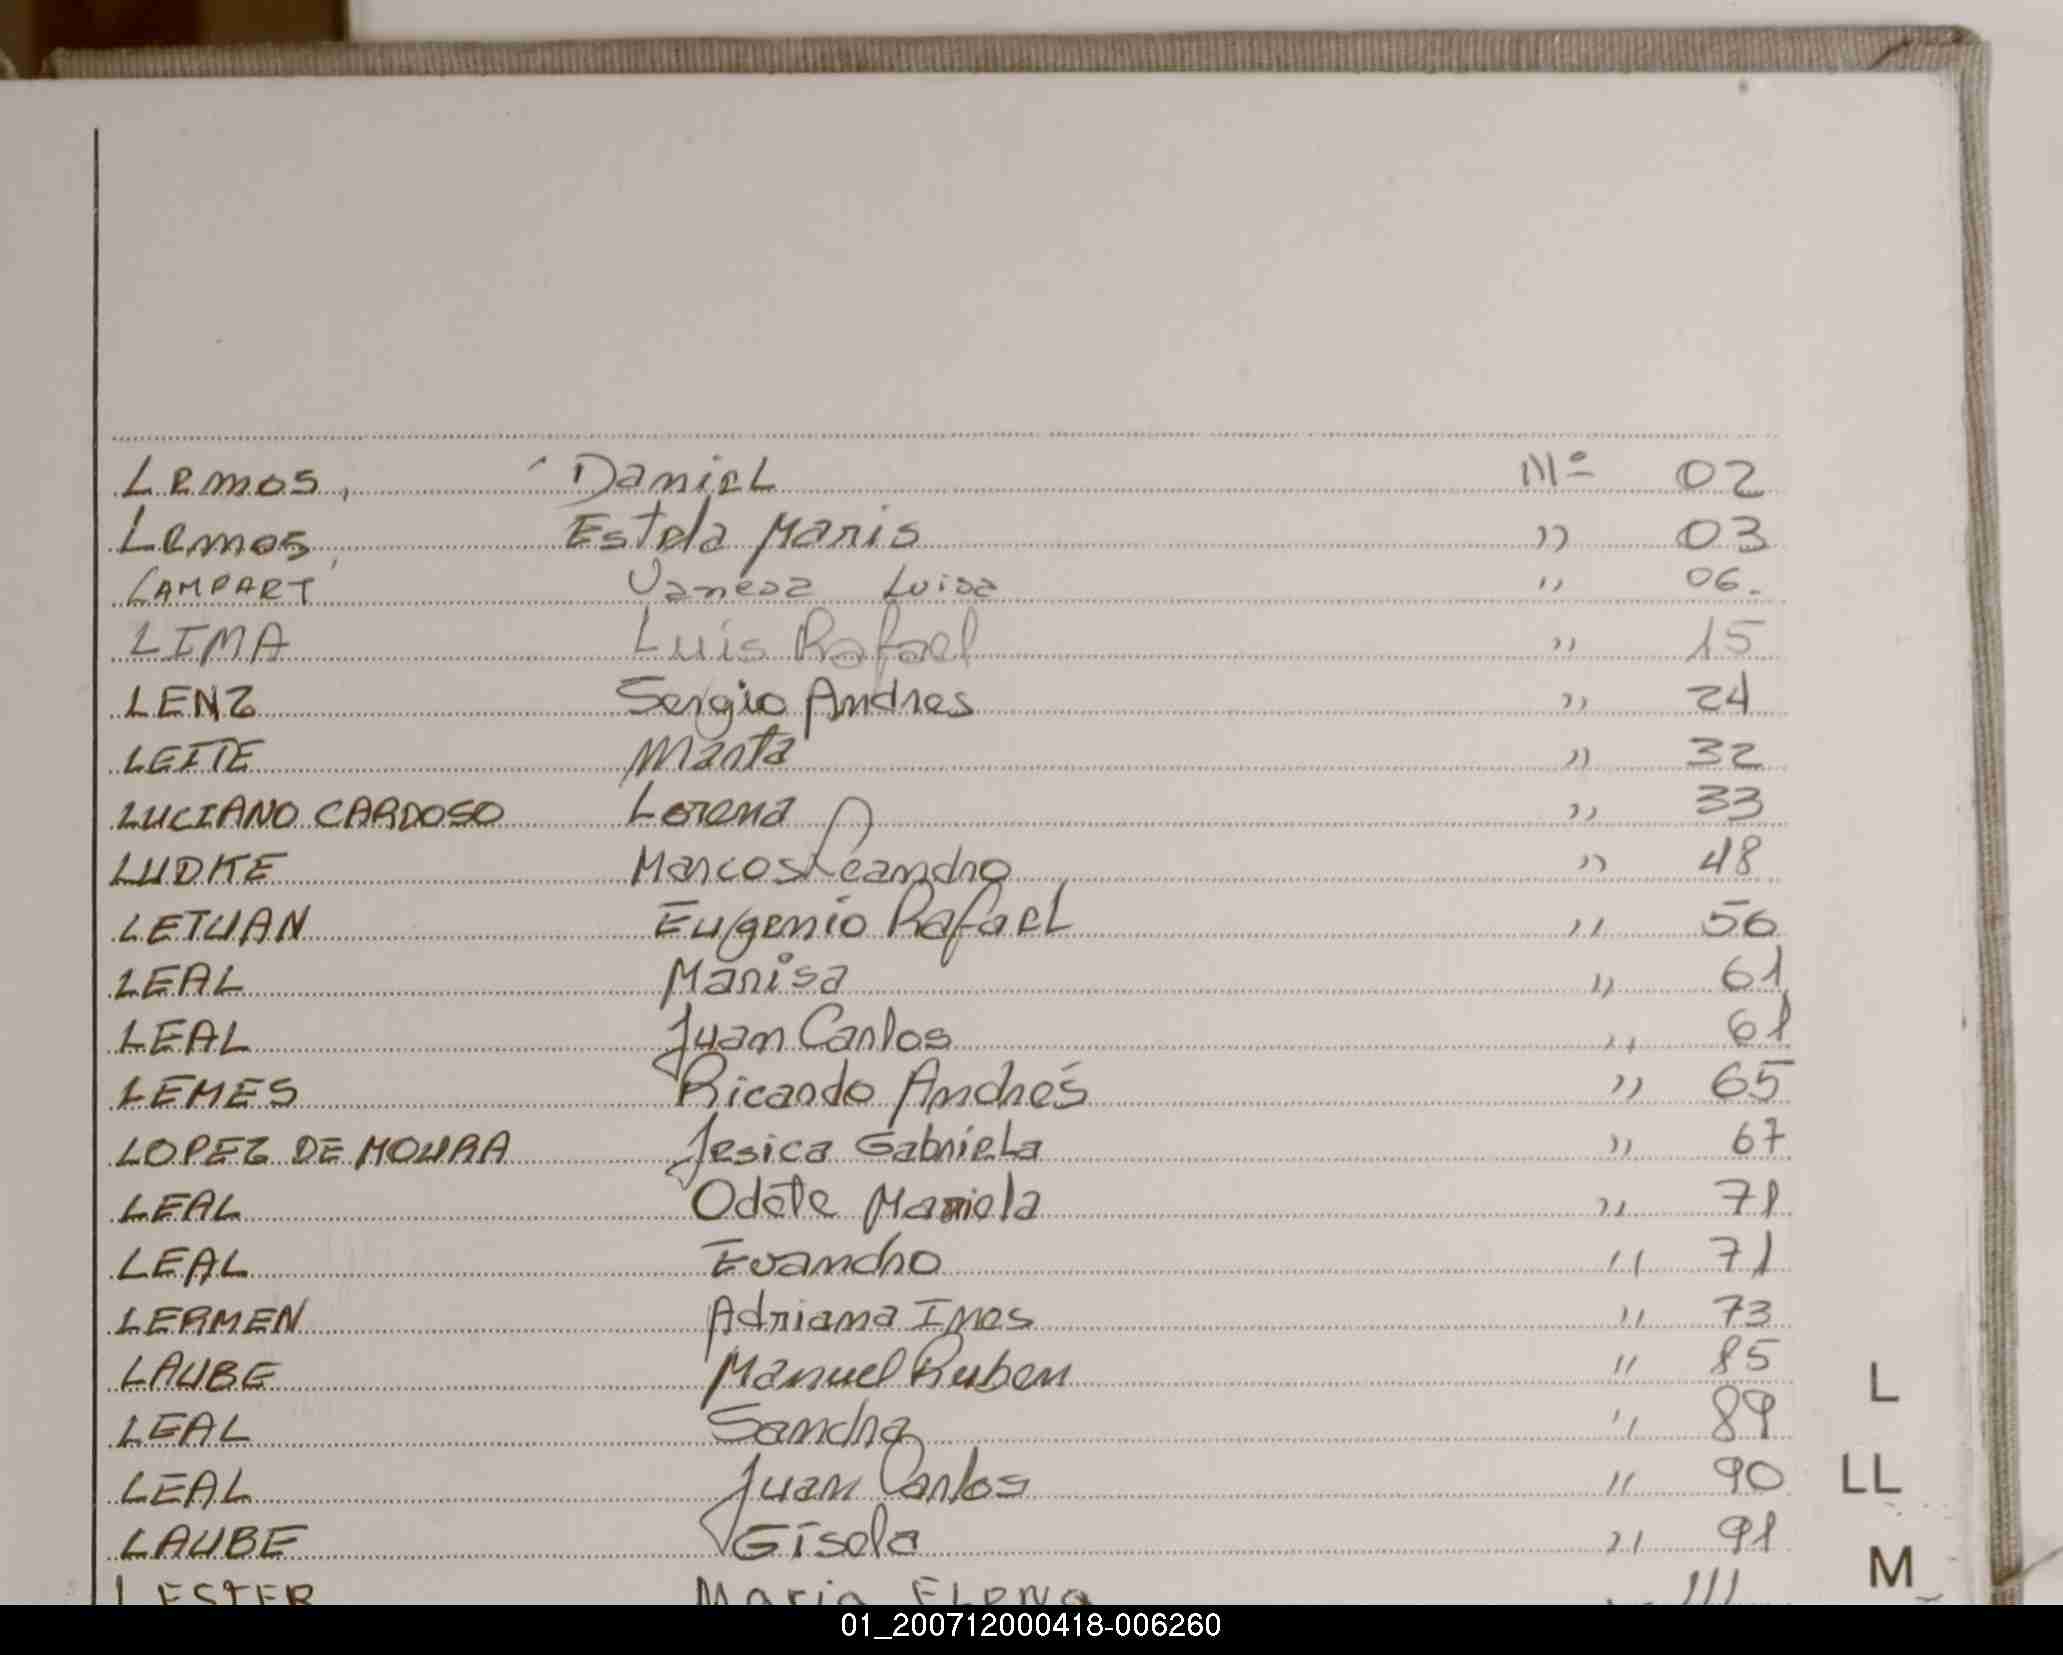 Lemos, Daniel IIIº 02
Lemos, Estela Maris " 03
LAMPART Vanesa Luisa " 06.
LIMA Luis Rafael " 15
LENZ Sergio Andres " 24
LEITE Marta " 32
LUCIANO CARDOSO Lorena " 33
LUDKE Marcos Leandro " 48
LETUAN Eugenio Rafael " 56
LEAL Marisa " 61
LEAL Juan Carlos " 61
LEMES Ricardo Andrés " 65
LOPEZ DE MOURA Jesica Gabriela " 67
LEAL Odete Mariela " 71
LEAL Evandro " 71
LERMEN Adriana Ines " 73
LAUBE Manuel Ruben " 85
L
LEAL Sandra " 89
LEAL Juan Carlos " 90
LL
LAUBE Gisela " 91
M
LESTER Maria Elena 111
01_200712000418-006260